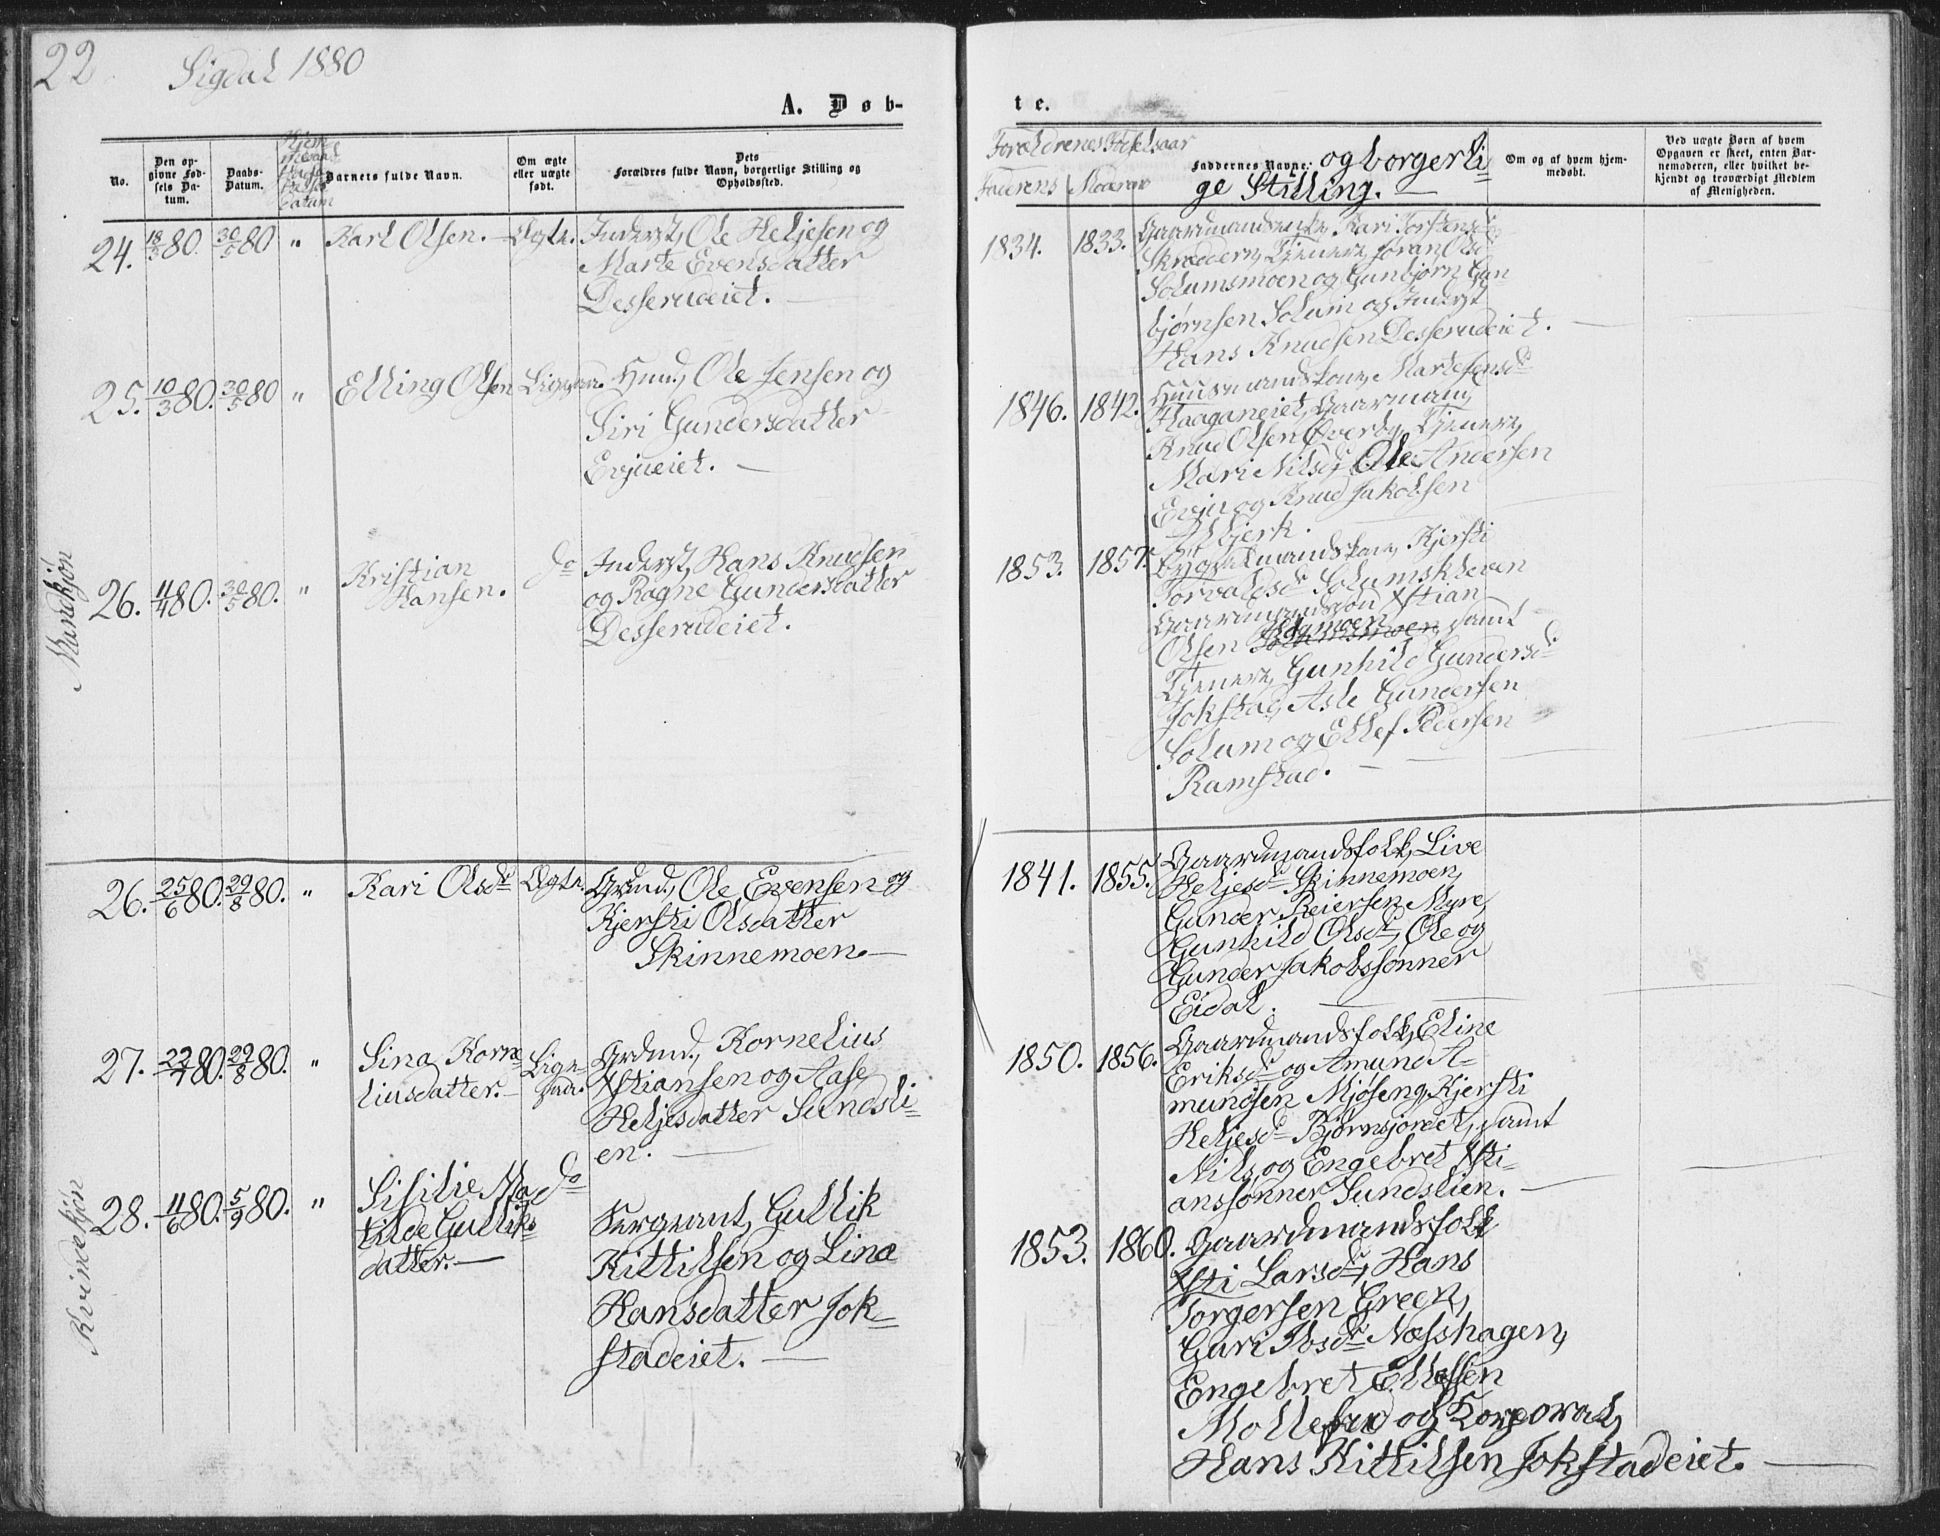 22
Sigdal 1880
A. Døb-
te.
No.
Den op-
givne Fød-
sels Da-
tum.
Daabs-
Datum.
Hjem-
Datum
Barnets fulde Navn.
Om ægte
eller uægte
født.
Dets
Forældres fulde Navn, borgerlige Stilling og
Opholdssted.
Forældrenes Fødselsaar
Faderens Moderens
Faddernes Navne: og borgerli-
ge Stilling.
Om og af hvem hjem-
medøbt.
Ved uægte Børn af hvem
Opgaven er skeet, enten Bar-
nemoderen, eller hvilket be-
kjendt og troværdigt Medlem
af Menigheden.
Mandkjøn
24. 18/3 80. 30/5 80 " Karl Olsen. Ægte.
Inderst, Ole Heljesen og
Marte Evensdatter
Desserudeiet.
1834. 1833.
Kari Torstensd.
Skrædder, Tjenere, Jøran Olsd.
Solumsmoen og Gunbjørn Gun-
bjørnsen Solum og Inderst
Hans Knudsen Desserudeiet.
25. 10/3 80. 30/5 80 " Elling Olsen Ligesaa
Husm., Ole Jensen og
Siri Gundersdatter
Evjueiet.
1846. 1842.
Huusmandskone, Marte Jensdr
Haaganeiet, Gaarmand,
Knud Olsen Øverby, Tjenere,
Mari Nilsdr, Ole Andersen
Evju og Knud Jakobsen
26. 11/4 80. 30/5 80. " Kristian
Hansen. do
Inderst, Hans Knudsen
og Ragne Gundersdatter
Desserudeiet.
1853. 1857.
Bygselmandskone, Kjersti
Torvaldsdr Solumskleven
Gaardmandssøn Xstian
Olsen samt
Tjenere, Gunhild Gundersdr
Jokstad, Asle Gundersen
Solum og Ellef Pedersen
Ramstad.
Kvindekjøn
26. 25/6 80. 29/8 80. " Kari Olsdr Ægte.
Grdmd, Ole Evensen og
Kjersti Olsdatter
Skinnemoen.
1841. 1855.
Gaardmandsfolk, Live
Heljesdr Skinnemoen,
Gunder Reiersen Myre,
Gunhild Olsdr, Ole og
Gunder Jakobssønner
Eidal.
27. 22/7 80. 29/8 80. " Sina Korne-
liusdatter. Lige-
saa.
Grdmd, Kornelius
Xstiansen og Aase
Heljesdatter Sundsli-
en.
1850. 1856.
Gaardmandsfolk, Eline
Eriksdr og Amund A-
mundsen Mjøseng, Kjersti
Heljesdr Bjørnsjordet, samt
Nils, og Engebret Xsti-
anssønner Sundslien.
28. 11/6 80. 5/9 80. " Sisilie Ma-
tilde Gulliks-
datter. do
Sergeant, Gullik
Kittilsen og Lina
Hansdatter Jok-
stadeiet.
1853. 1860.
Gaardmandsfolk
Xsti Larsdr, Hans
Torgersen Green,
Guri Ibsdr Næsshagen,
Engebret Ellefsen
Mollerud og Korporal,
Hans Kittilsen Jokstadeiet.